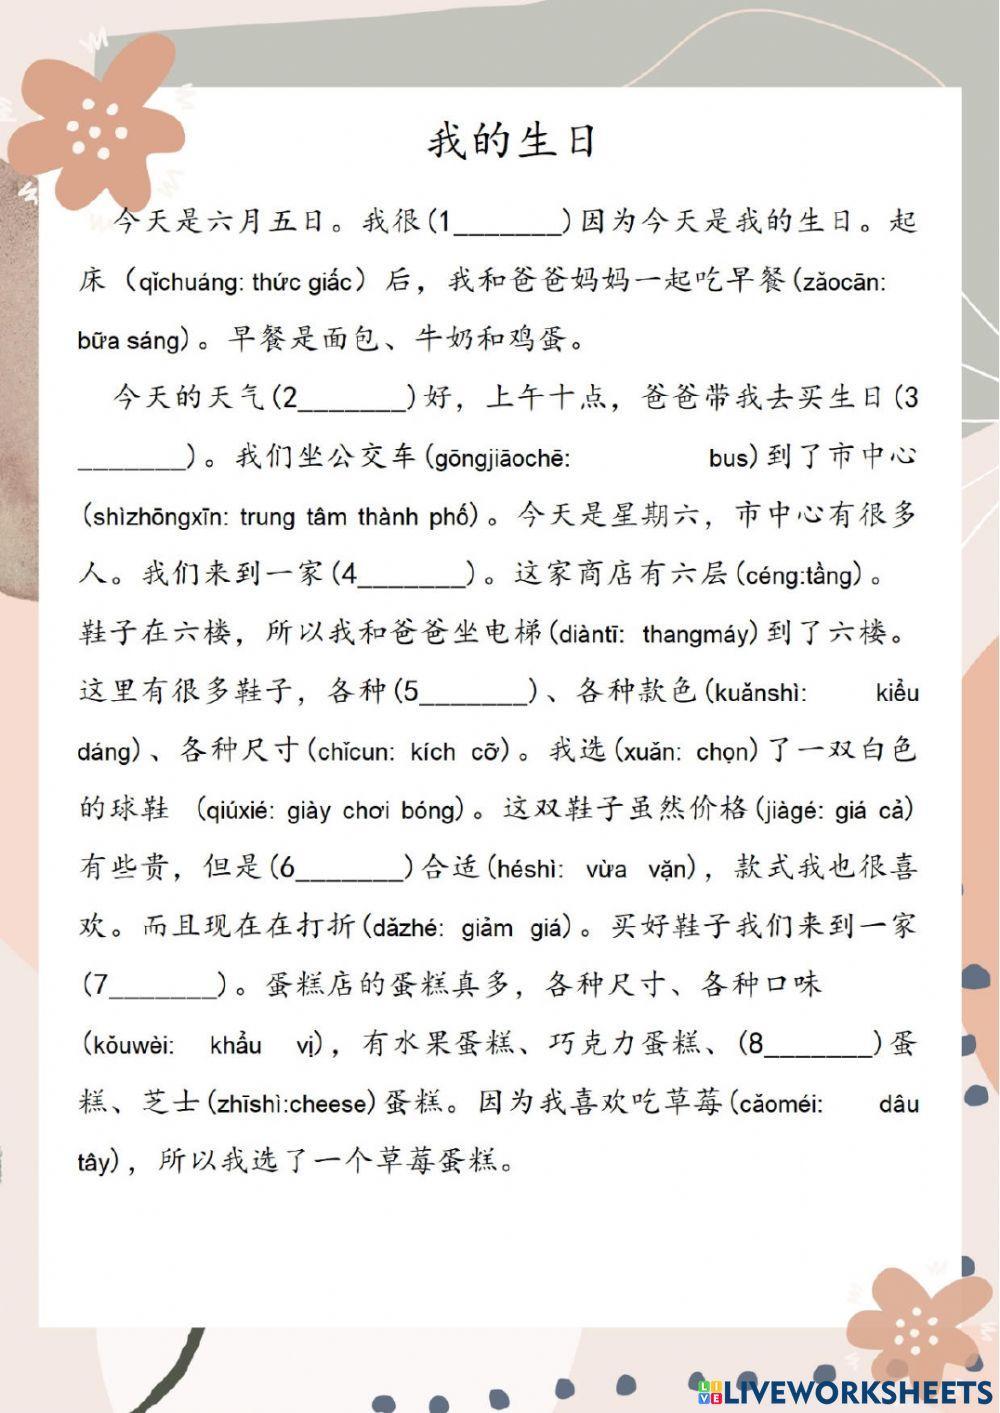 我的生日
今天是六月五日。我很(1_______)因为今天是我的生日。起
床（qǐchuáng: thức giấc）后，我和爸爸妈妈一起吃早餐(zǎocān:
bữa sáng)。早餐是面包、牛奶和鸡蛋。
今天的天气(2_______)好，上午十点，爸爸带我去买生日(3
_______)。我们坐公交车(gōngjiāochē: bus)到了市中心
(shìzhōngxīn: trung tâm thành phố)。今天是星期六，市中心有很多
人。我们来到一家(4_______)。这家商店有六层(céng:tầng)。
鞋子在六楼，所以我和爸爸坐电梯(diàntī: thangmáy)到了六楼。
这里有很多鞋子，各种(5_______)、各种款色(kuǎnshì: kiểu
dáng)、各种尺寸(chǐcun: kích cỡ)。我选(xuǎn: chọn)了一双白色
的球鞋 (qiúxié: giày chơi bóng)。这双鞋子虽然价格(jiàgé: giá cả)
有些贵，但是(6_______)合适(héshì: vừa vặn)，款式我也很喜
欢。而且现在在打折(dǎzhé: giảm giá)。买好鞋子我们来到一家
(7_______)。蛋糕店的蛋糕真多，各种尺寸、各种口味
(kǒuwèi: khẩu vị)，有水果蛋糕、巧克力蛋糕、(8_______)蛋
糕、芝士(zhīshì:cheese)蛋糕。因为我喜欢吃草莓(cǎoméi: dâu
tây)，所以我选了一个草莓蛋糕。
LIVE LIVEWORKSHEETS